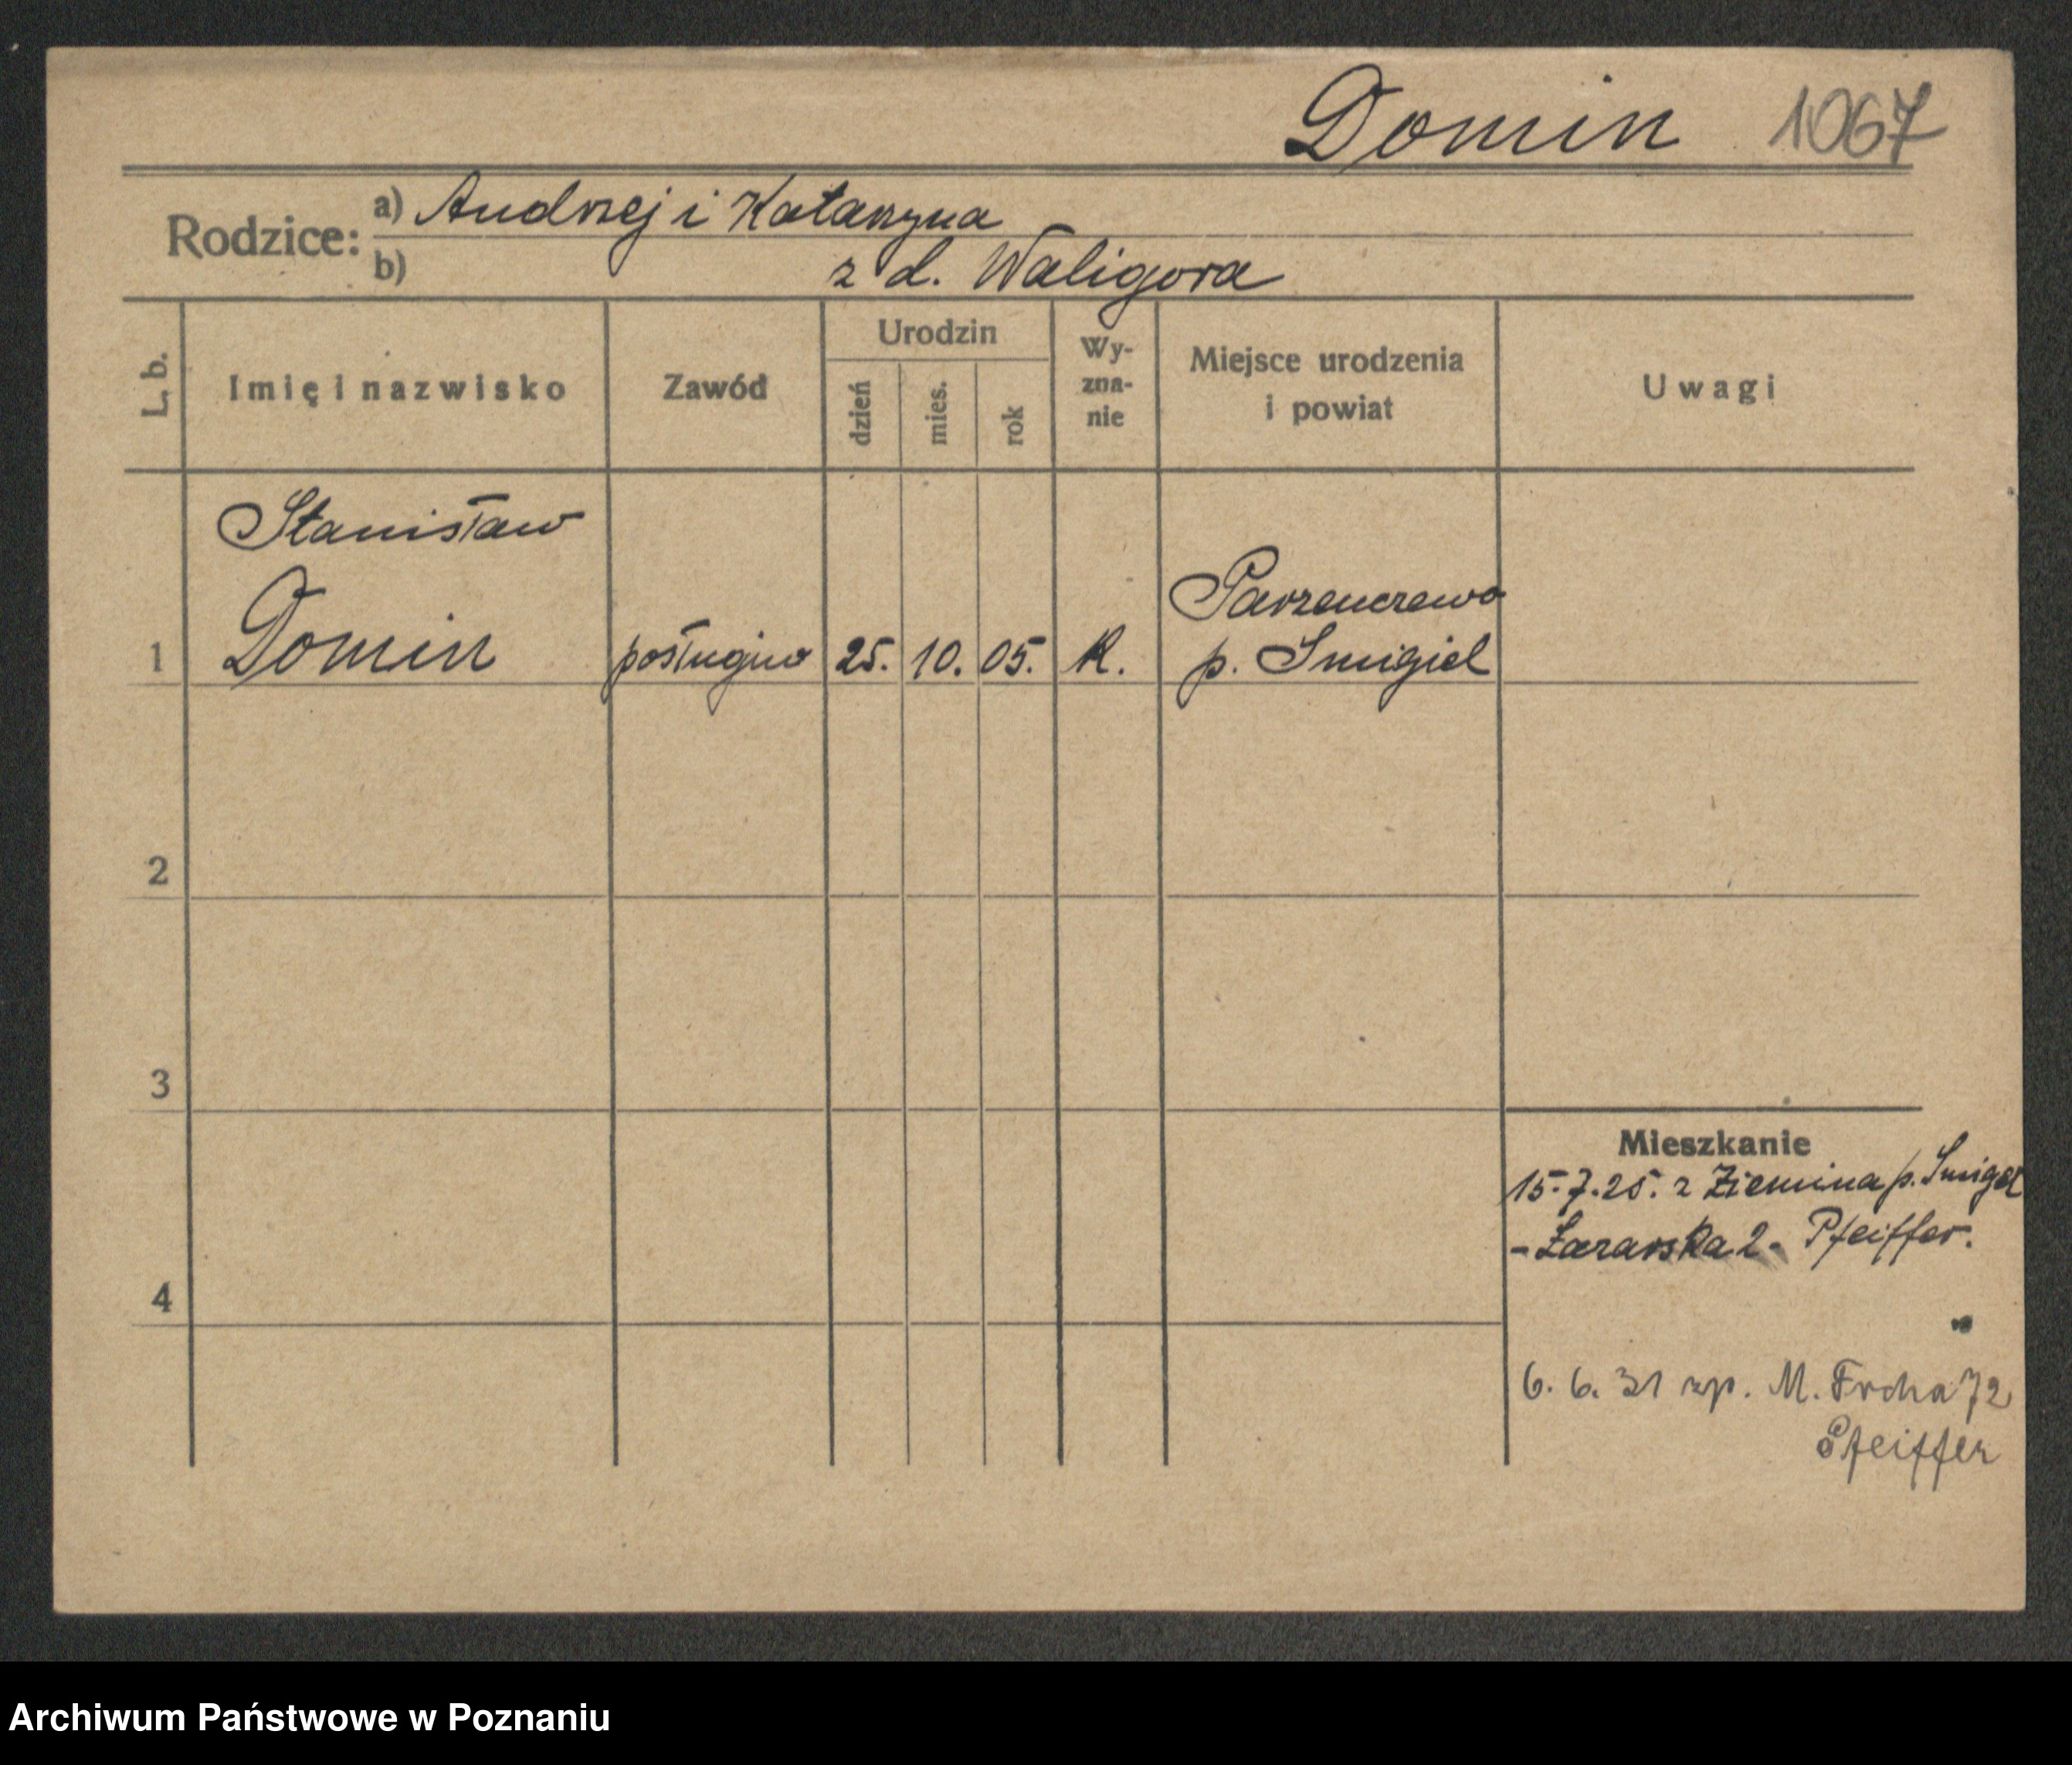 Domin 1067
Rodzice: a) Andrzej i Katarzyna
b) z d. Waligora
L. b. Imię i nazwisko Zawód Urodzin dzień mies. rok Wy-zna-nie Miejsce urodzenia i powiat Uwagi
Stanisław
Parzenczewo
1 Domin posługiw 25. 10. 05. K. p. Smigiel
2
3
Mieszkanie
15.7.25. z Ziemina p. Smigel
- Łazarska 2 - Pfeiffer.
4
6. 6. 31 zp. M. Focha 72
Pfeiffer
Archiwum Państwowe w Poznaniu